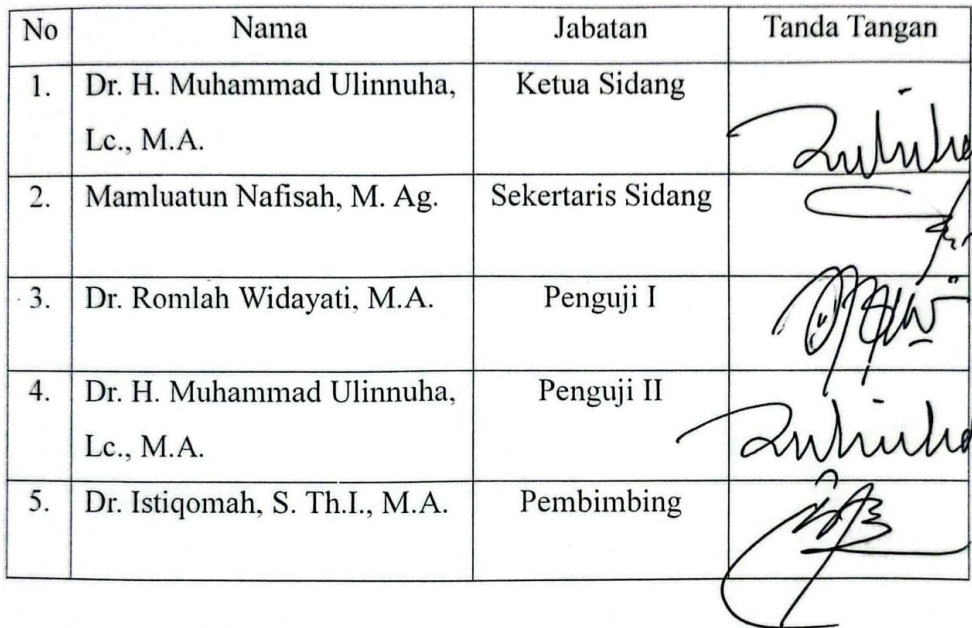 No Nama Jabatan Tanda Tangan
1. Dr. H. Muhammad Ulinnuha, Ketua Sidang
Lc., M.A.
2. Mamluatun Nafisah, M. Ag. Sekertaris Sidang
3. Dr. Romlah Widayati, M.A. Penguji I
4. Dr. H. Muhammad Ulinnuha, Penguji II
Lc., M.A.
5. Dr. Istiqomah, S. Th.I., M.A. Pembimbing